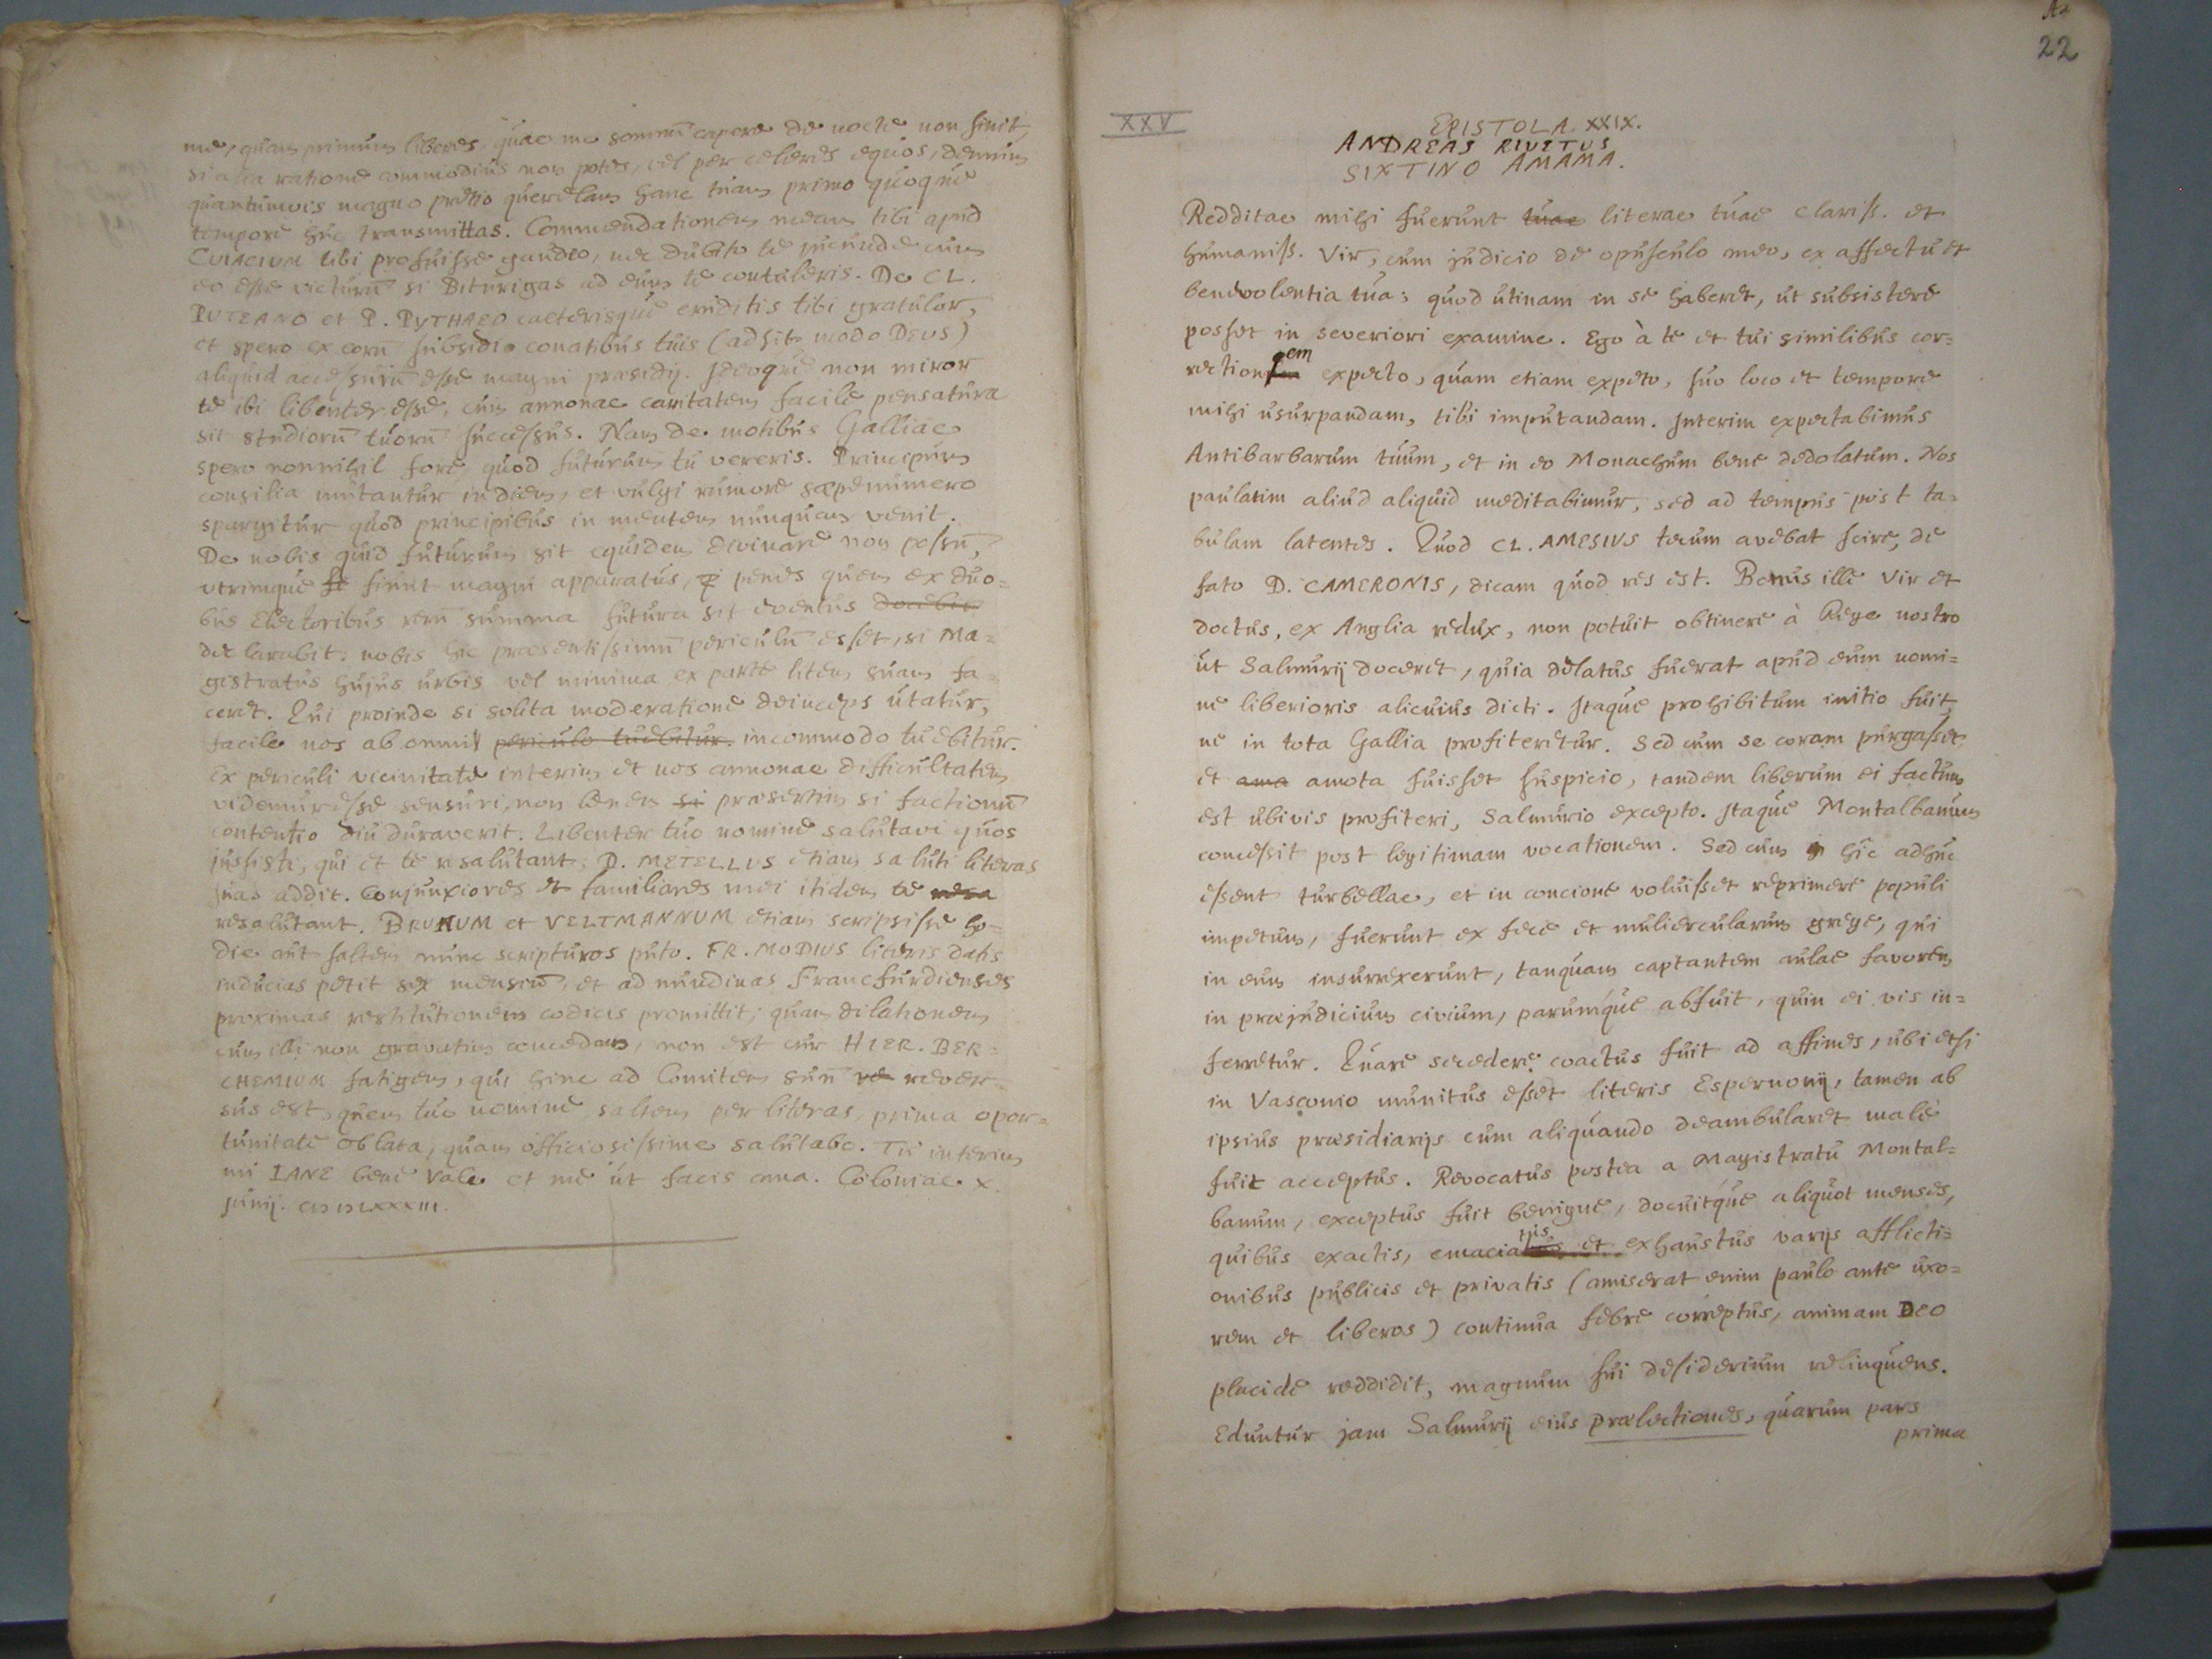 me, quam primum liberes, quae me somnū capere de nocte non sinit,
si alia ratione commodius non potes, vel per celeres equos, demum
quantumvis magno pretio querelam hanc tuam primo quoque
tempore huc transmittas. Commendationem meam tibi apud
CUIACIUM tibi profuisse gaudeo, nec dubito te jucunde cum
eo esse victurū si Biturigas ad eum te contuleris. De CL.
PUTEANO et P. PYTHAEO caeterisque eruditis tibi gratulor,
et spero ex eorū subsidio conatibus tuis (adsit modo DEUS)
aliquid accessurū esse magni praesidij. Ideoque non miror
te ibi libenter esse, cum annonae caritatem facile pensatura
sit studiorū tuorū successus. Nam de motibus Galliae
spero nonnihil fore, quod futurum tu vereris. Principum
consilia mutantur in diem, et vulgi rumore saepenumero
spargitur quod principibus in mentem nunquam venit.
De nobis quid futurum sit equidem divinare non possū,
utrimque fiunt magni apparatus, penes quem ex duo=
bus Electoribus rerū summa futura sit eventus docebit
declarabit: nobis hic praesentissimū periculū esset, si Ma=
gistratus hujus urbis vel minima ex parte litem suam fa=
ceret. Qui proinde si solita moderatione deinceps utatur,
facile nos ab omni periculo tuebitur. incommodo tuebitur.
Ex periculi vicinitate interim et nos annonae difficultatem
videmur esse sensuri, non levem si praesertim si factionū
contentio diu duraverit. Libenter tuo nomine salutavi quos
jussisti, qui et te resalutant; D. METELLUS etiam saluti literas
suas addit. Conjunxiores et familiares mei itidem te resa
resalutant. BRUNUM et VELTMANNUM etiam scripsisse ho=
die aut saltem nunc scripturos puto. FR. MODIUS literis datis
inducias petit sex mensiū, et ad nundinas Francfurdienses
proximas restitutionem codicis promittit; quam dilationem
cum illi non gravatim concedam, non est cur HIER. BER=
CHEMIUM fatigem, qui hinc ad Comitem suū re rever=
sus est, quem tuo nomine saltem per literas, prima opor=
tunitate oblata, quam officiosissime salutabo. Tu interim
mi IANE bene vale et me ut facis ama. Coloniae X.
Junij. CIↃ IↃ LXXXIII.
22
XXV
EPISTOLA XXIX.
ANDREAS RIVETUS
SIXTINO AMAMA.
Redditae mihi fuerunt tuae literae tuae clariss. et
humaniss. Vir, cum judicio de opusculo meo, ex affectu et
benevolentia tua; quod utinam in se haberet, ut subsistere
posset in severiori examine. Ego à te et tui similibus cor=
rectionem expecto, quam etiam expeto, suo loco et tempore
mihi usurpandam, tibi imputandam. Interim expectabimus
Antibarbarum tuum, et in eo Monachum bene dedolatum. Nos
paulatim aliud aliquid meditabimur, sed ad tempus post ta=
bulam latentes. Quod CL. AMESIUS tecum avebat scire, de
fato D. CAMERONIS, dicam quod res est. Bonus ille Vir et
doctus, ex Anglia redux, non potuit obtinere à Rege nostro
ut Salmurij doceret, quia delatus fuerat apud eum nomi=
ne liberioris alicuius dicti. Itaque prohibitum initio fuit,
ne in tota Gallia profiteretur. Sed cum se coram purgasset
et ama amota fuisset suspicio, tandem liberum ei factum
est ubivis profiteri, Salmurio excepto. Itaque Montalbanum
concessit post legitimam vocationem. Sed cum hîc adhuc
essent turbellae, et in concione voluisset reprimere populi
impetum, fuerunt ex fece et muliercularum grege, qui
in eum insurrexerunt, tanquam captantem aulae favorem
in praejudicium civium, parumque abfuit, quin ei vis in=
ferretur. Quare secedere coactus fuit ad affines, ubi etsi
in Vasconio munitus esset literis Espernonij, tamen ab
ipsius praesidiarijs cum aliquando deambularet male
fuit acceptus. Revocatus postea a Magistratu Montal=
banum, exceptus fuit benigne, docuitque aliquot menses,
quibus exactis, emaciatus et exhaustus varijs afflicti=
onibus publicis et privatis (amiserat enim paulo ante uxo=
rem et liberos) continua febre correptus, animam DEO
placide reddidit, magnum sui desiderium relinquens.
Eduntur jam Salmurij eius praelectiones, quarum pars
prima